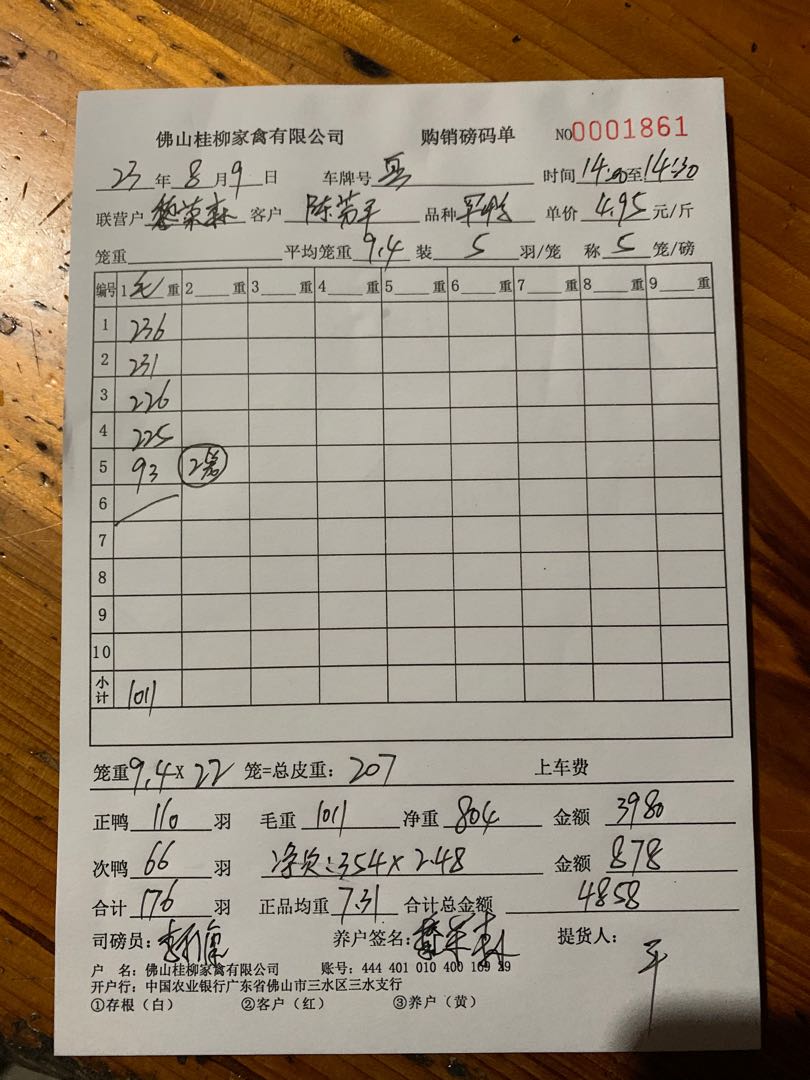 佛山桂柳家禽有限公司 购销磅码单 NO0001861
23年8月9日 车牌号 时间14:00至14:30
联营户 荣森 客户 陈 平 品种 单价 4.95 元/斤
笼重 平均笼重9.4装 5 羽/笼 称 5 笼/磅
编号 1毛重 2 重 3 重 4 重 5 重 6 重 7 重 8 重 9 重
1 236
2 231
3 226
4 225
5 93 2笼
6
7
8
9
10
小计 1011
笼重9.4×22笼=总皮重:207 上车费
正鸭 110 羽 毛重 1011 净重 804 金额 3980
次鸭 66 羽 净重:354×2.48 金额 878
合计 176 羽 正品均重 7.31 合计总金额 4858
司磅员: 养户签名: 荣森 提货人: 平
户 名:佛山桂柳家禽有限公司 账号:444 401 010 400 169 29
开户行:中国农业银行广东省佛山市三水区三水支行
①存根(白) ②客户(红) ③养户(黄)